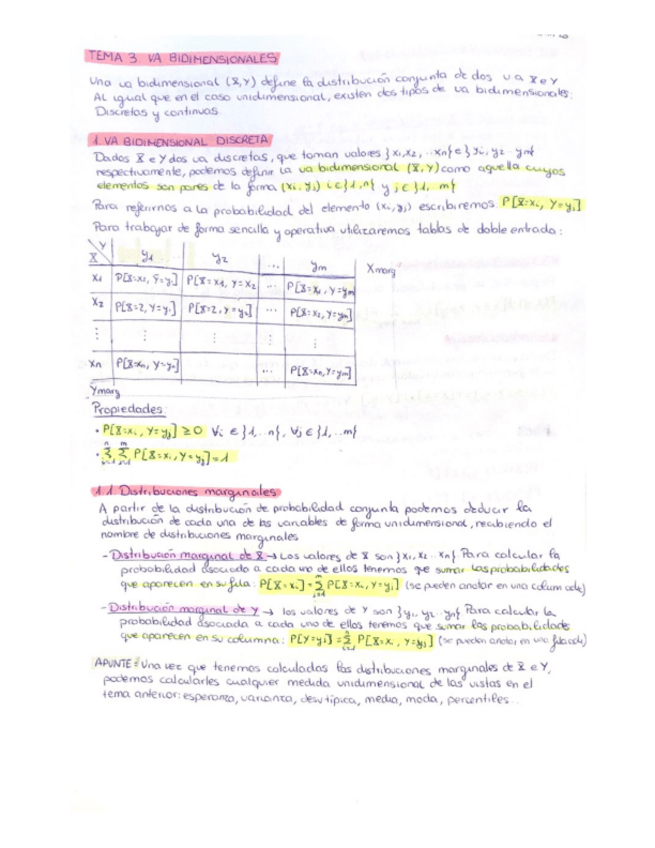 TEMA 3. VA BIDIMENSIONALES
Una va bidimensional (X,Y) define la distribución conjunta de dos va X e Y
Al igual que en el caso unidimensional, existen dos tipos de va bidimensionales:
Discretas y continuas.
1. VA BIDIMENSIONAL DISCRETA
Dadas X e Y dos va discretas, que toman valores {x1,x2, ..xn} e {y1, y2 .. ym}
respectivamente, podemos definir la va bidimensional (X,Y) como aquella cuyos
elementos son pares de la forma (xi, yj) i∈{1,n} y j∈{1, m}
Para referirnos a la probabilidad del elemento (xi,yj) escribiremos P[X=xi, Y=yj]
Para trabajar de forma sencilla y operativa utilizaremos tablas de doble entrada:
X Y y1 y2 ... ym Xmarg
x1 P[X=x1, Y=y1] P[X=x1, Y=x2 ... P[X=x1, Y=ym]
x2 P[X=2, Y=y1] P[X=2, Y=y2] ... P[X=x2, Y=ym]
⋮ ⋮ ⋮ ⋮ ⋮
xn P[X=xn, Y=y1] ... P[X=xn, Y=ym]
Ymarg
Propiedades:
• P[X=xi, Y=yj] ≥ 0 ∀i ∈ {1,..n}, ∀j ∈ {1,..m}
• Σ(i=1, n) Σ(j=1, m) P[X=xi, Y=yj] = 1
1.1. Distribuciones marginales
A partir de la distribución de probabilidad conjunta podemos deducir la
distribución de cada una de las variables de forma unidimensional, recibiendo el
nombre de distribuciones marginales
- Distribución marginal de X → Los valores de X son {x1, x2 .. xn} Para calcular la
probabilidad asociada a cada uno de ellos tenemos que sumar las probabilidades
que aparecen en su fila: P[X=xi] = Σ(j=1, m) P[X=xi, Y=yj] (se pueden anotar en una columna)
- Distribución marginal de Y → los valores de Y son {y1, y2 .. ym} Para calcular la
probabilidad asociada a cada uno de ellos tenemos que sumar las probabilidades
que aparecen en su columna: P[Y=yj] = Σ(i=1, n) P[X=xi, Y=yj] (se pueden anotar en una fila
APUNTE: Una vez que tenemos calculadas las distribuciones marginales de X e Y,
podemos calcularles cualquier medida unidimensional de las vistas en el
tema anterior: esperanza, varianza, desv típica, media, moda, percentiles...